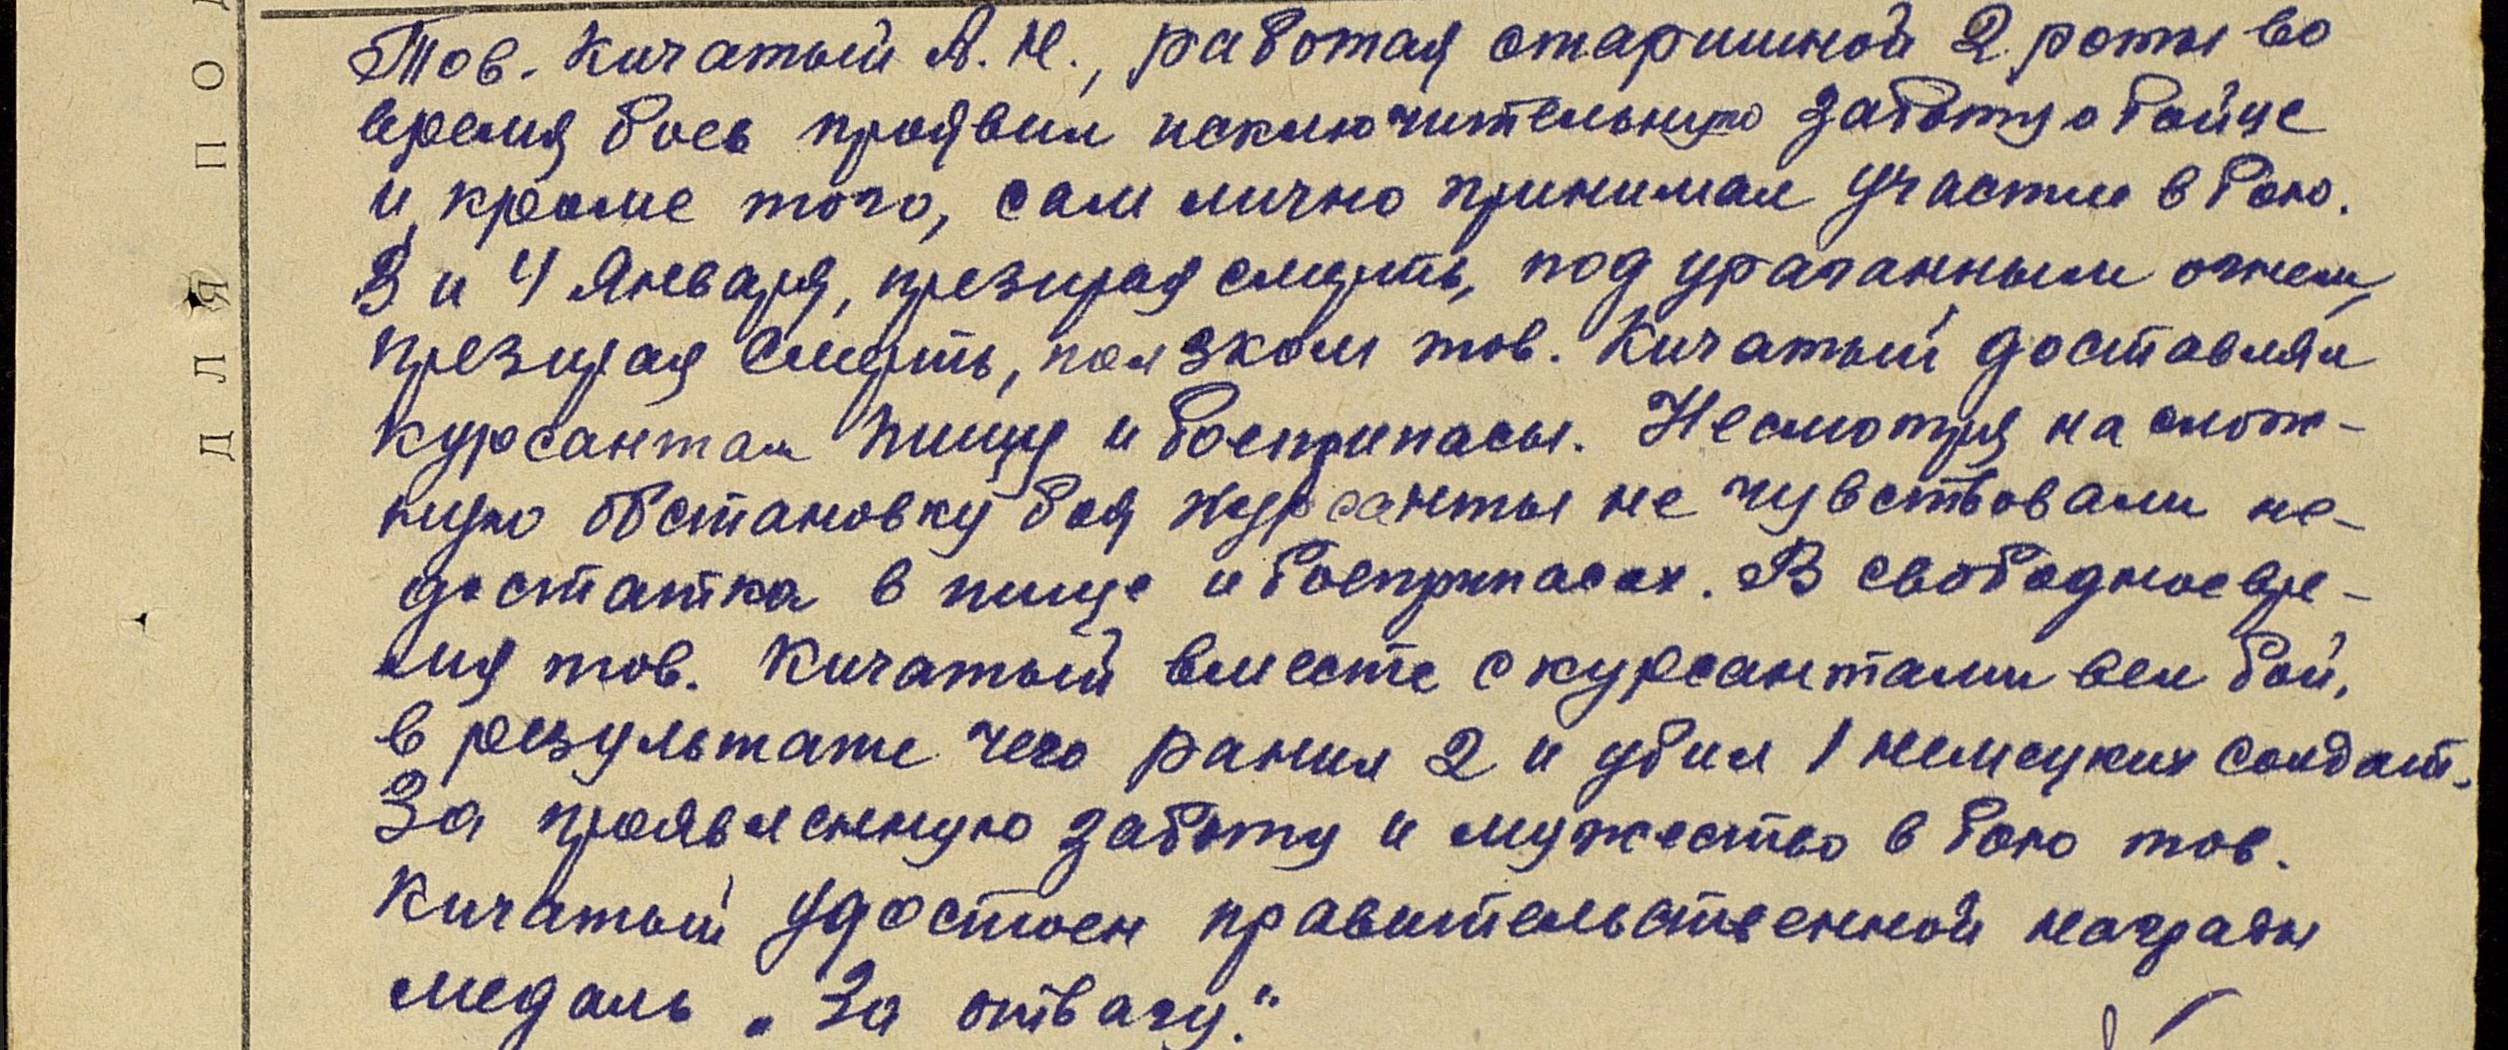 Тов. Кичатый А.Н., работая старшиной 2 роты во
время боев проявил исключительную заботу о бойце
и, кроме того, сам лично принимал участие в бою.
3 и 4 Января, презирая смерть, под ураганным огнем,
презирая смерть, ползком тов. Кичатый доставлял
курсантам пищу и боеприпасы. Несмотря на слож-
ную обстановку боя курсанты не чувствовали не-
достатка в пище и боеприпасах. В свободное вре-
мя тов. Кичатый вместе с курсантами вел бой,
в результате чего ранил 2 и убил 1 немецких солдат.
За проявленную заботу и мужество в бою тов.
Кичатый удостоен правительственной награды
медаль „За отвагу."
ДЛЯ ПОД